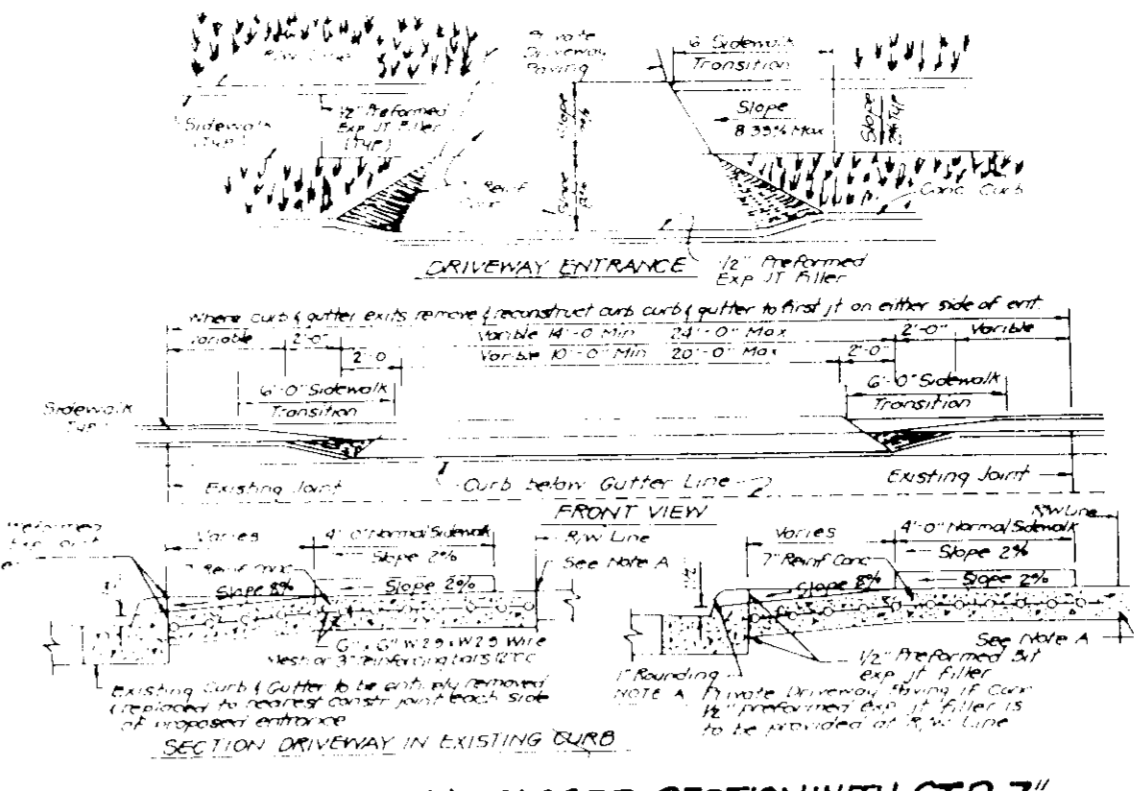 R/W Line
Private
Driveway
Paving
6' Sidewalk
Transition
Sidewalk
(Typ.)
1/2" Preformed
Exp JT Filler
(Typ)
Slope
Slope
8.33% Max
Slope
Typ
7" Reinf
Conc
Slope
Conc Curb
DRIVEWAY ENTRANCE
1/2" Preformed
Exp JT Filler
Where curb & gutter exits remove & reconstruct curb curb & gutter to first jt on either side of ent.
Variable 2'-0" Varible 14'-0" Min 24'-0" Max 2'-0" Varible
2'-0 Varible 10'-0" Min 20'-0" Max 2'-0"
6'-0" Sidewalk
Transition
6'-0" Sidewalk
Transition
Sidewalk
Typ.
Existing Joint
Curb below Gutter Line
Existing Joint
FRONT VIEW
Preformed
Exp Joint
Varies
4'-0" Normal Sidewalk
Slope 2%
R/W Line
See Note A
7" Reinf Conc
Slope 8%
Slope 2%
6" x 6" W2.9 x W2.9 Wire
Mesh or 3" reinforcing bars 12" c c
Existing Curb & Gutter to be entirely removed
& replaced to nearest constr joint each side
of proposed entrance
SECTION DRIVEWAY IN EXISTING CURB
R/W Line
Varies
4'-0" Normal Sidewalk
Slope 2%
7" Reinf Conc
Slope 8%
Slope 2%
1 1/2"
See Note A
1/2" Preformed Bit
exp jt filler
1" Rounding
NOTE A Private Driveway Paving if Conc
1/2" preformed exp jt filler is
to be provided at R/W Line
SECTION WITH
7"